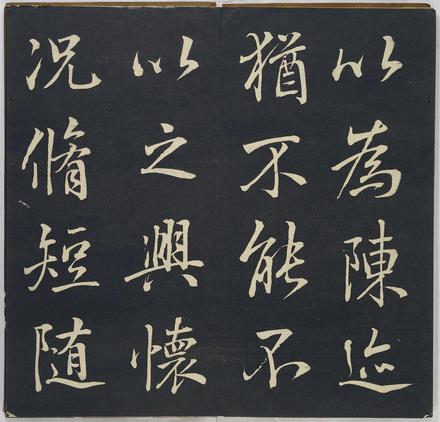 以為陳迹
猶不能不
以之興懷
况脩短随